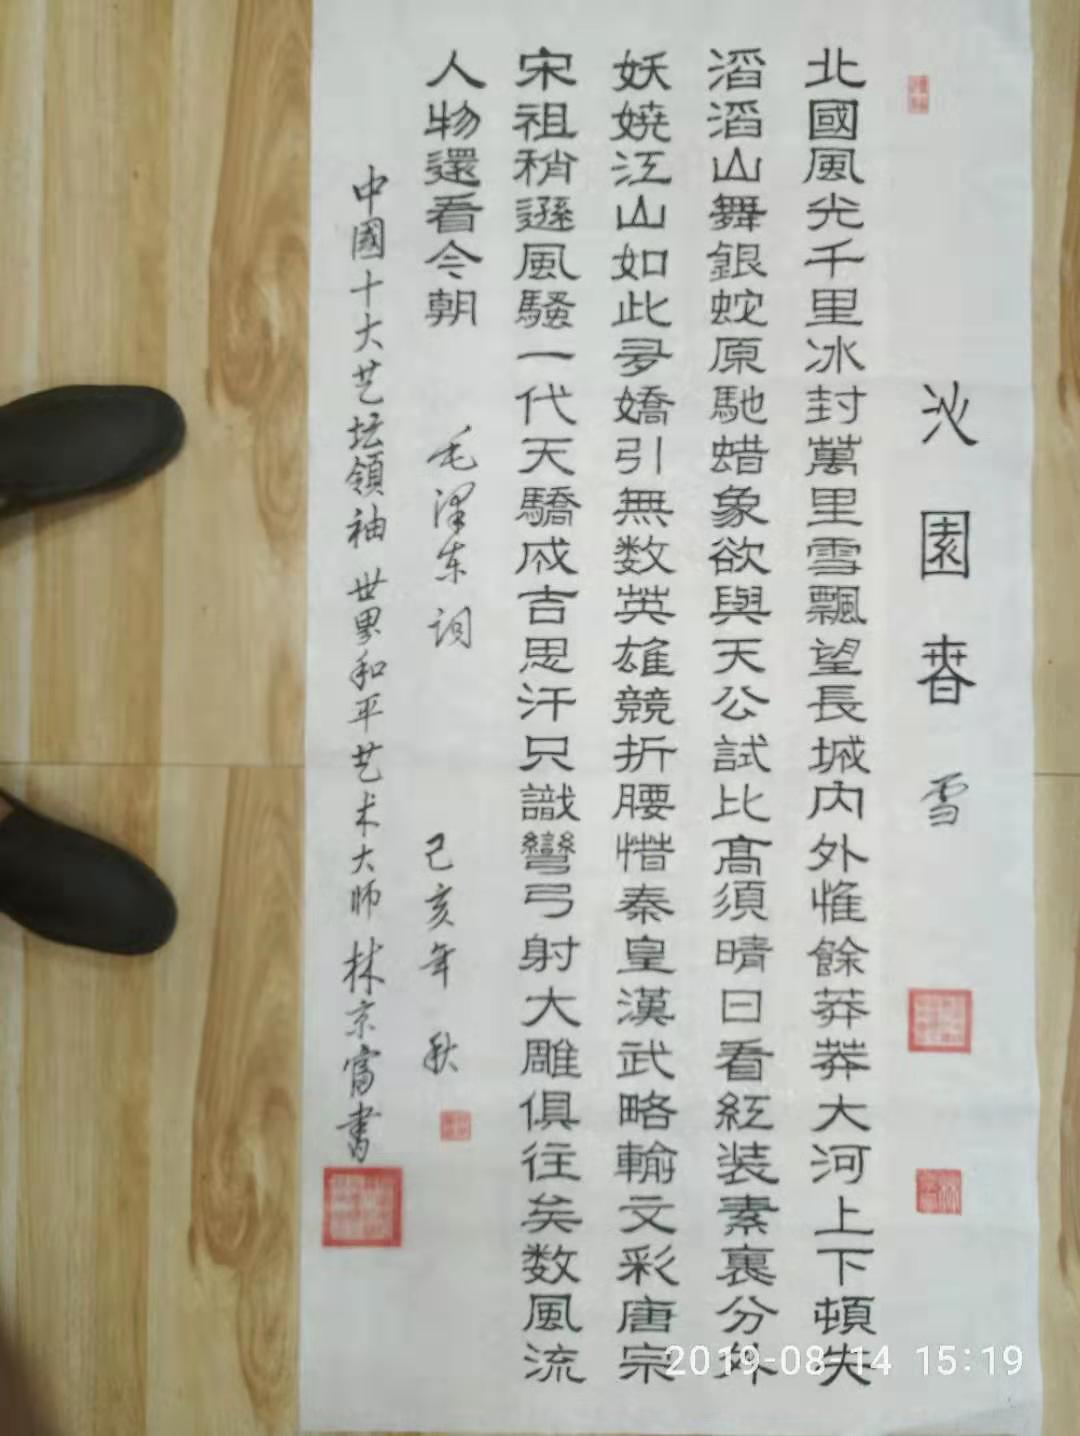 沁園春 雪
北國風光千里冰封萬里雪飄望長城内外惟餘莽莽大河上下頓失
滔滔山舞銀蛇原馳蜡象欲與天公試比髙須晴日看紅装素裹分外
妖嬈江山如此多嬌引無数英雄競折腰惜秦皇漢武略輸文彩唐宗
宋祖稍遜風騷一代天驕成吉思汗只識彎弓射大雕俱往矣数風流
人物還看今朝 毛澤东詞 己亥年 秋
中國十大艺坛領袖 世界和平艺术大师 林京富書
2019-08-14 15:19